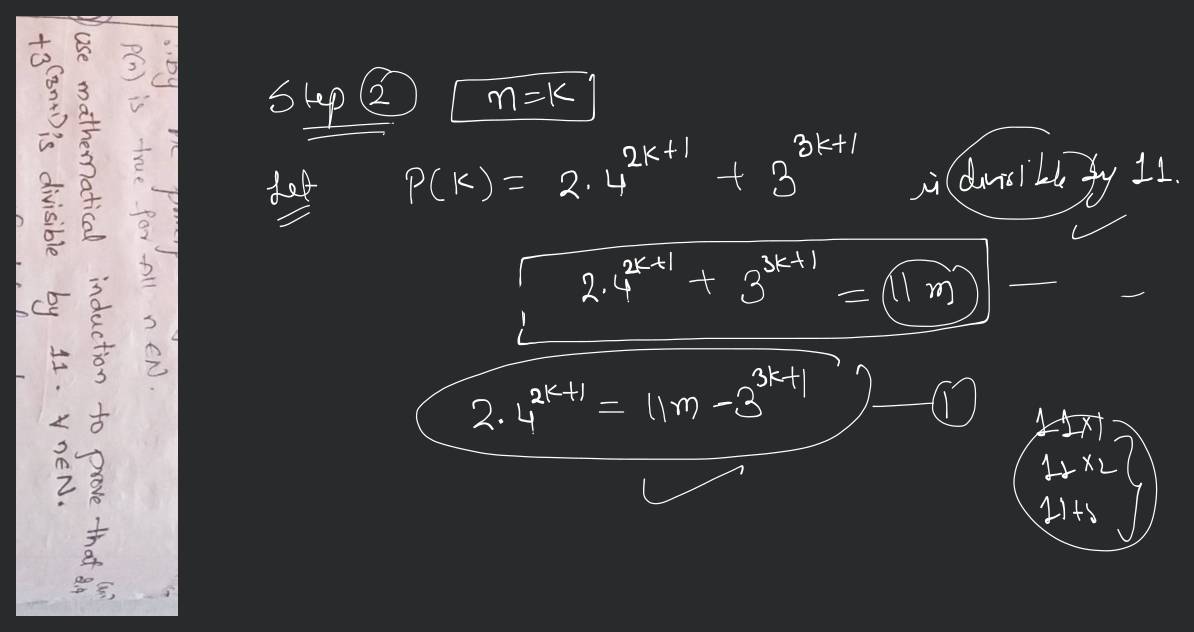 ∴ By
P(n) is true for all n ∈ N.
Use mathematical induction to prove that
+3^(3n+1) is divisible by 11. ∀ n∈N.
Step ② n=K
Let P(K) = 2.4^2K+1 + 3^3K+1 is divisible by 11.
2.4^2K+1 + 3^3K+1 = 11 m — –
2.4^2K+1 = 11m - 3^3K+1 — ①
11×1
11×2